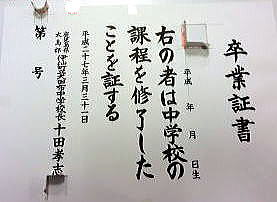 卒業証書
平成 年 月 日生
右の者は中学校の
課程を修了した
ことを証する
平成二十七年三月三十一日
鹿児島県
大島郡
伊仙町立面縄中学校長 十田孝志
第 号